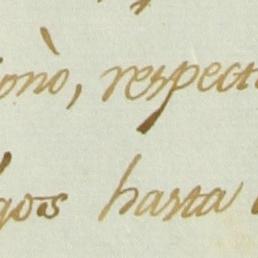 onò, respect
gos hasta